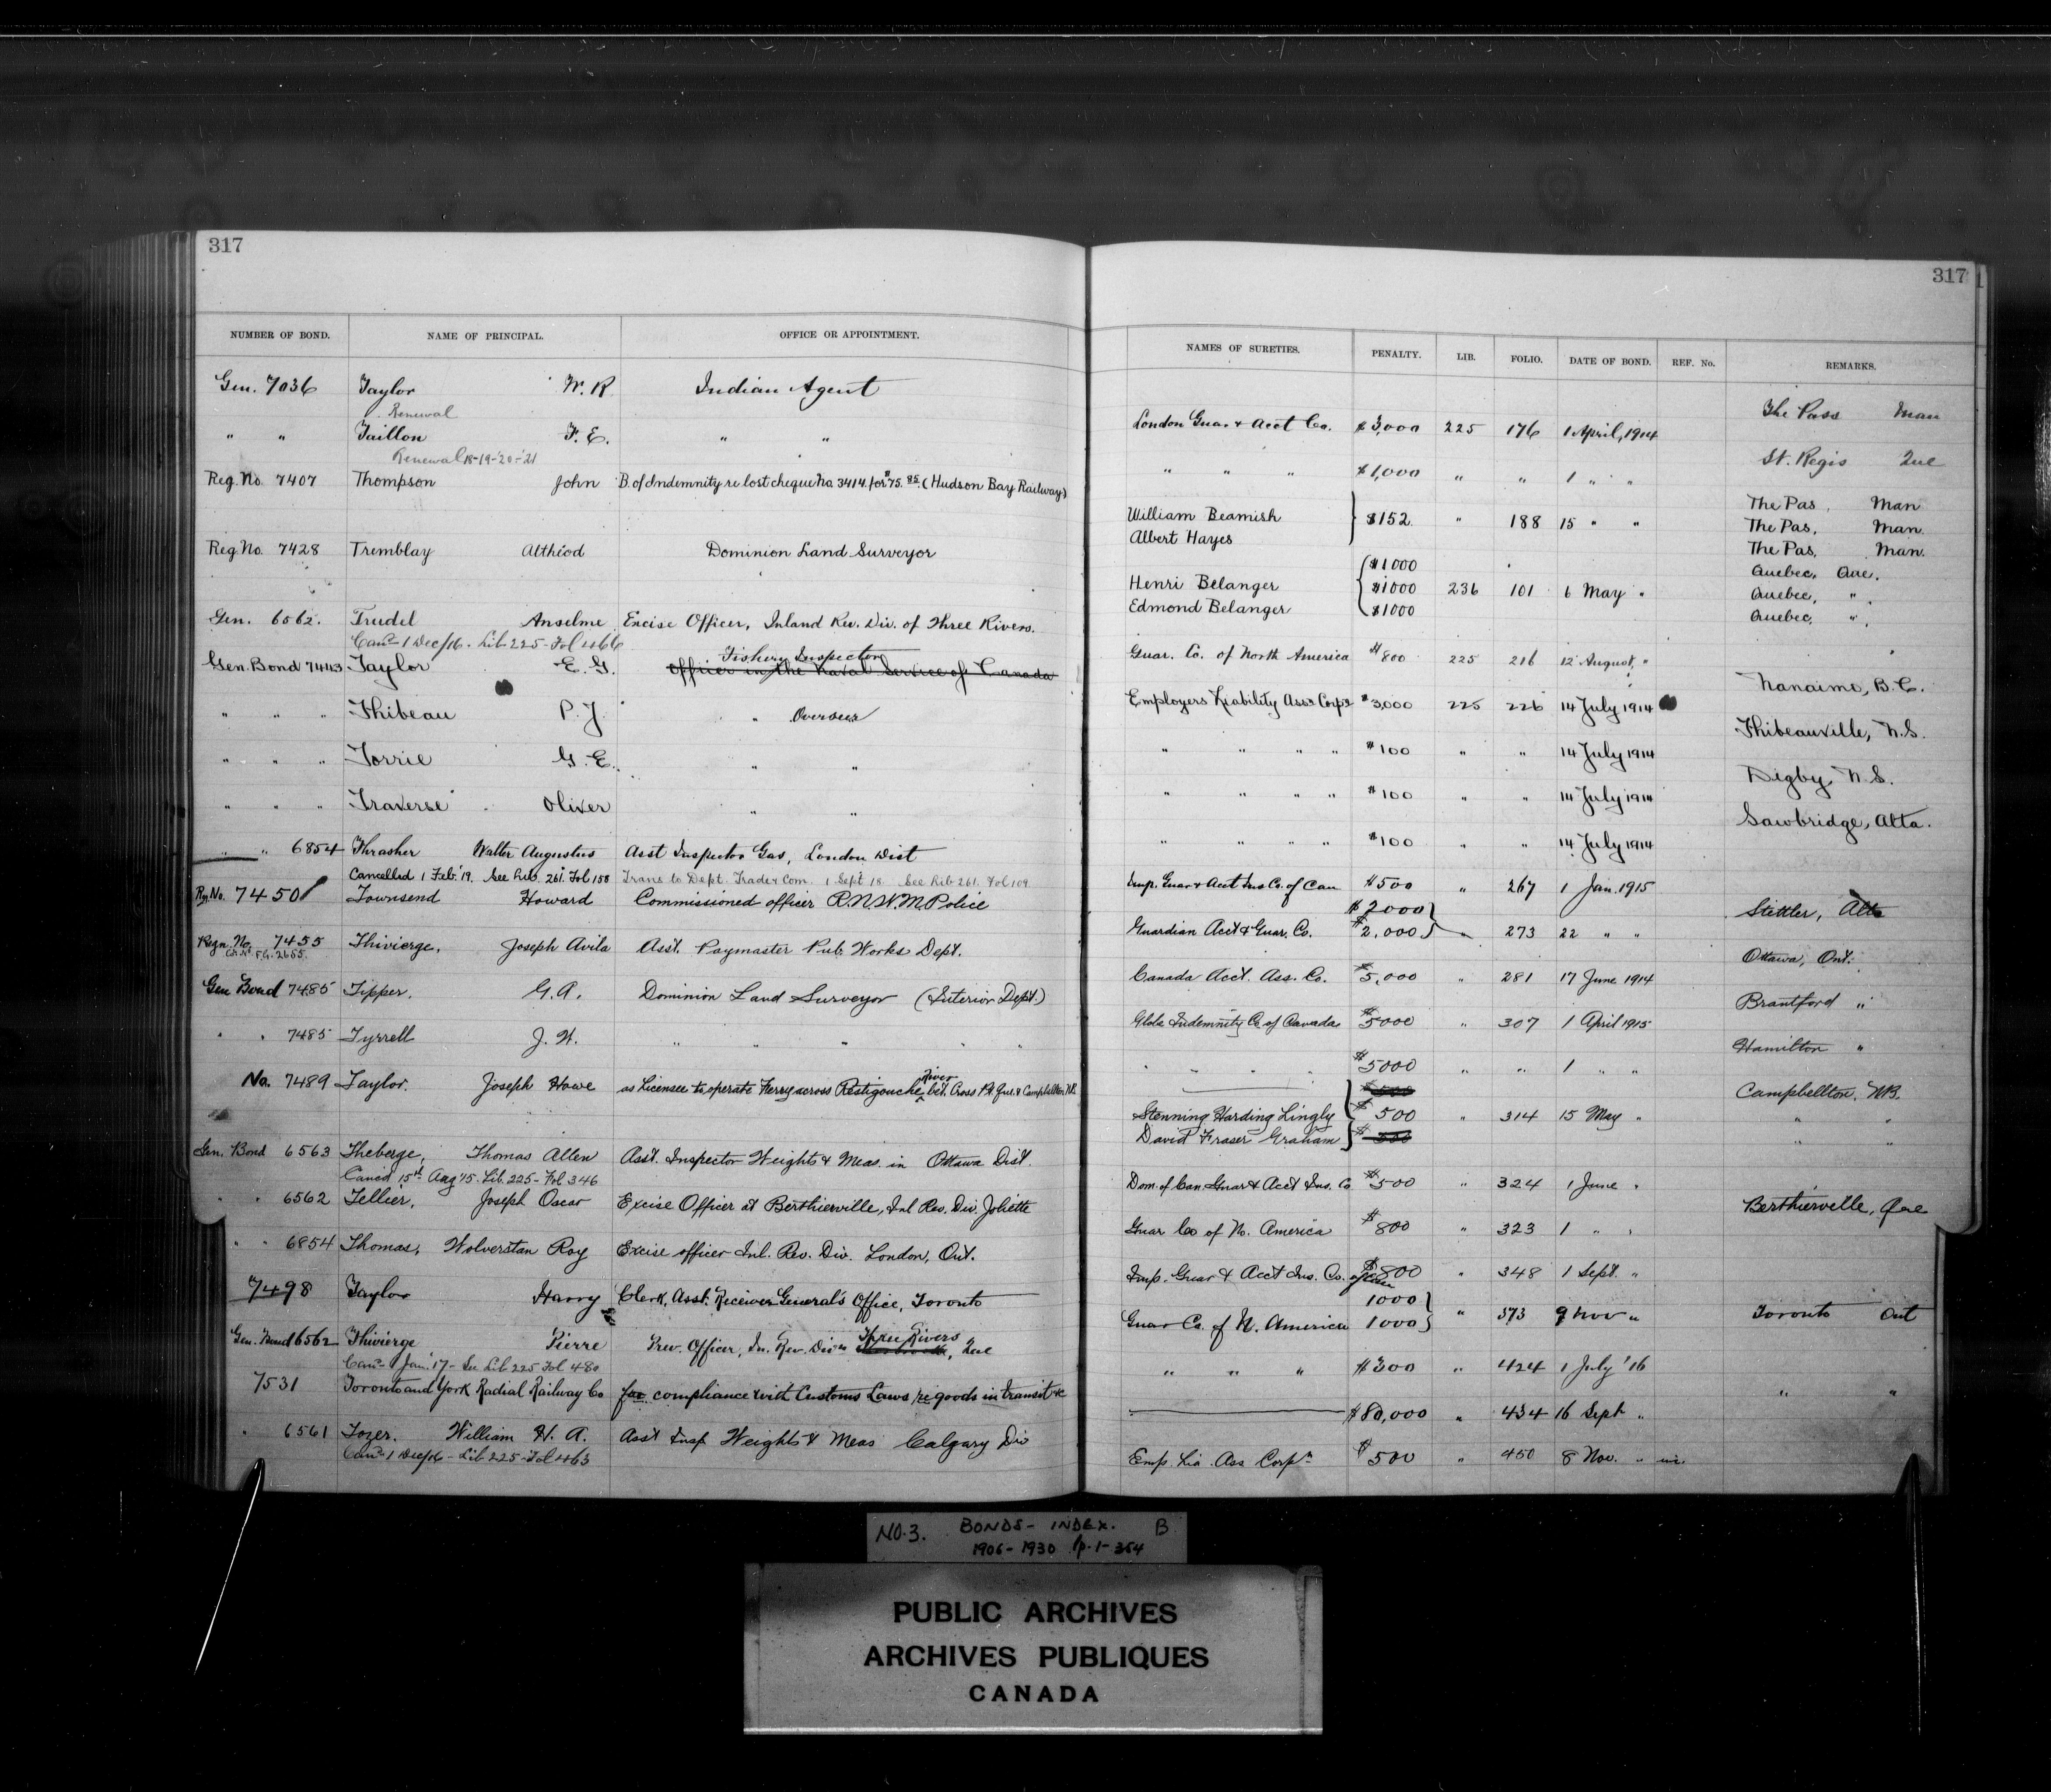 317
317
NUMBER OF BOND. NAME OF PRINCIPAL. OFFICE OR APPOINTMENT. NAMES OF SURETIES. PENALTY. LIB. FOLIO. DATE OF BOND. REF. No. REMARKS.
Gen. 7036 Taylor W. R Indian Agent London Guar. & Acct Co. $3,000 225 176 1 April, 1914 The Pass Man
Renewal
" " Taillon F. E. " " " " " $1,000 " " 1 " " St. Regis Que
Renewal 18-19-'20-'21
Reg. No. 7407 Thompson John B. of Indemnity re lost cheque No. 3414 for $75.85 (Hudson Bay Railway) The Pas, Man
William Beamish $152 " 188 15 " " The Pas, Man.
Albert Hayes The Pas, Man.
Reg No. 7428 Tremblay Dominion Land Surveyor $1000 Quebec, Que.
Henri Belanger $1000 236 101 6 May " Quebec, "
Edmond Belanger $1000 Quebec, "
Gen. 6562. Trudel Anselme Excise Officer, Inland Rev. Div. of Three Rivers. Guar. Co. of North America $800 225 216 12 August, "
Canc 1 Dec/16. Lib 225-Fol 466
Fishery Inspector
Gen. Bond 7443 Taylor E. G. Officer in the Naval Service of Canada Employers Liability Assce Corpn $3,000 225 226 14 July 1914 Nanaimo, B.C.
" " " Thibeau P. J. " Overseer " " " " $100 " " 14 July 1914 Thibeauville, N.S.
" " " Torrie G. E. " " " " " " $100 " " 14 July 1914 Digby, N.S.
" " " Traverse Oliver " " " " " " $100 " " 14 July 1914 Sawbridge, Alta.
" " 6854 Thrasher Walter Augustus Asst Inspector Gas, London Dist Imp. Guar & Acct Ins Co. of Can $500 " 267 1 Jan. 1915
Cancelled 1 Feb. '19. See Lib. 261. Fol 158 Trans to Dept. Trade & Com. 1 Sept 18. See Lib 261. Fol 109
$2000
Reg No. 7450 Townsend Howard Commissioned officer R.N.W.M. Police Guardian Acct & Guar. Co. $2,000 " 273 22 " " Stettler, Alta
Regn. No. 7455 Thivierge, Joseph Avila Asst. Paymaster Pub. Works Dept. Canada Acct. Ass. Co. $5,000 " 281 17 June 1914 Ottawa, Ont.
Gen Bond 7485 Tipper, G. A. Dominion Land Surveyor (Interior Dept.) Globe Indemnity Co of Canada $5000 " 307 1 April 1915 Brantford "
" " 7485 Tyrrell J. W. " " " " " " " " $5000 " " 1 " " Hamilton "
No. 7489 Taylor. Joseph Howe as Licensee to operate Ferry across Restigouche River bet. Cross Pt. Que. & Campbellton, N.B. Campbellton, N.B.
Stenning Harding Lingly $500 " 314 15 May " " "
David Fraser Graham " "
Gen. Bond 6563 Theberge, Thomas Allen Asst. Inspector Weights & Meas. in Ottawa Dist. Dom. of Can. Guar & Acct Ins. Co $500 " 324 1 June "
Canc'd 15th Aug '15. Lib. 225-Fol. 346
" " 6562 Tellier, Joseph Oscar Excise Officer at Berthierville, Inl Rev. Div. Joliette Guar Co of No. America $800 " 323 1 " " Berthierville, Que
" " 6854 Thomas, Wolverstan Roy Excise officer Inl. Rev. Div. London, Ont. Imp. Guar & Acct Ins. Co. of Can $800 " 348 1 Sept. "
1000
7498 Taylor Harry Clerk, Asst. Receiver General's Office, Toronto Guar Co. of N. America 1000 " 373 9 Nov " Toronto Ont
Gen. Bond 6562 Thivierge Pierre Prev. Officer, In. Rev. Divn Three Rivers, Que " " " $300 " 424 1 July '16
Canc 1 Jan. '17 - See Lib 225 Fol 480
7531 Toronto and York Radial Railway Co for compliance with Customs Laws re goods in transit &c $80,000 " 434 16 Sept " " "
" 6561 Tozer. William H. A. Asst Insp Weights & Meas Calgary Div Emp. Lia. Ass Corpn $500 " 450 8 Nov. "
Canc 1 Dec/16 - Lib 225-Fol 463
NO. 3. BONDS - INDEX. B
1906 - 1930 p. 1-354
PUBLIC ARCHIVES
ARCHIVES PUBLIQUES
CANADA